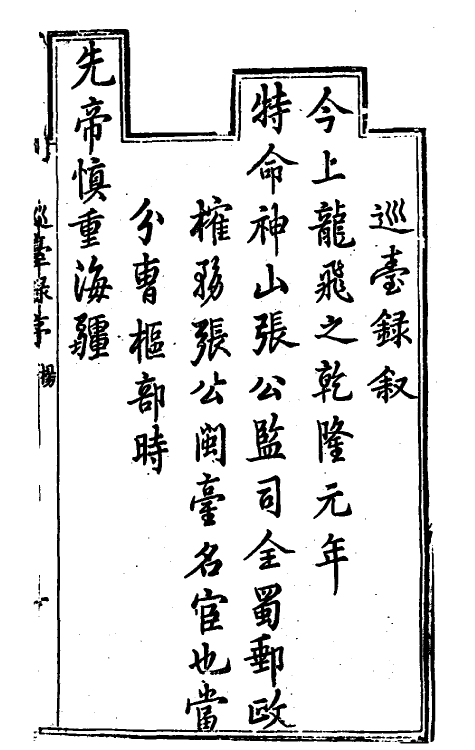 巡臺録叙
今上龍飛之乾隆元年
特命神山張公監司全蜀郵政
榷務張公閩臺名宦也當
分曹樞部時
先帝慎重海疆
巡臺録序
楊